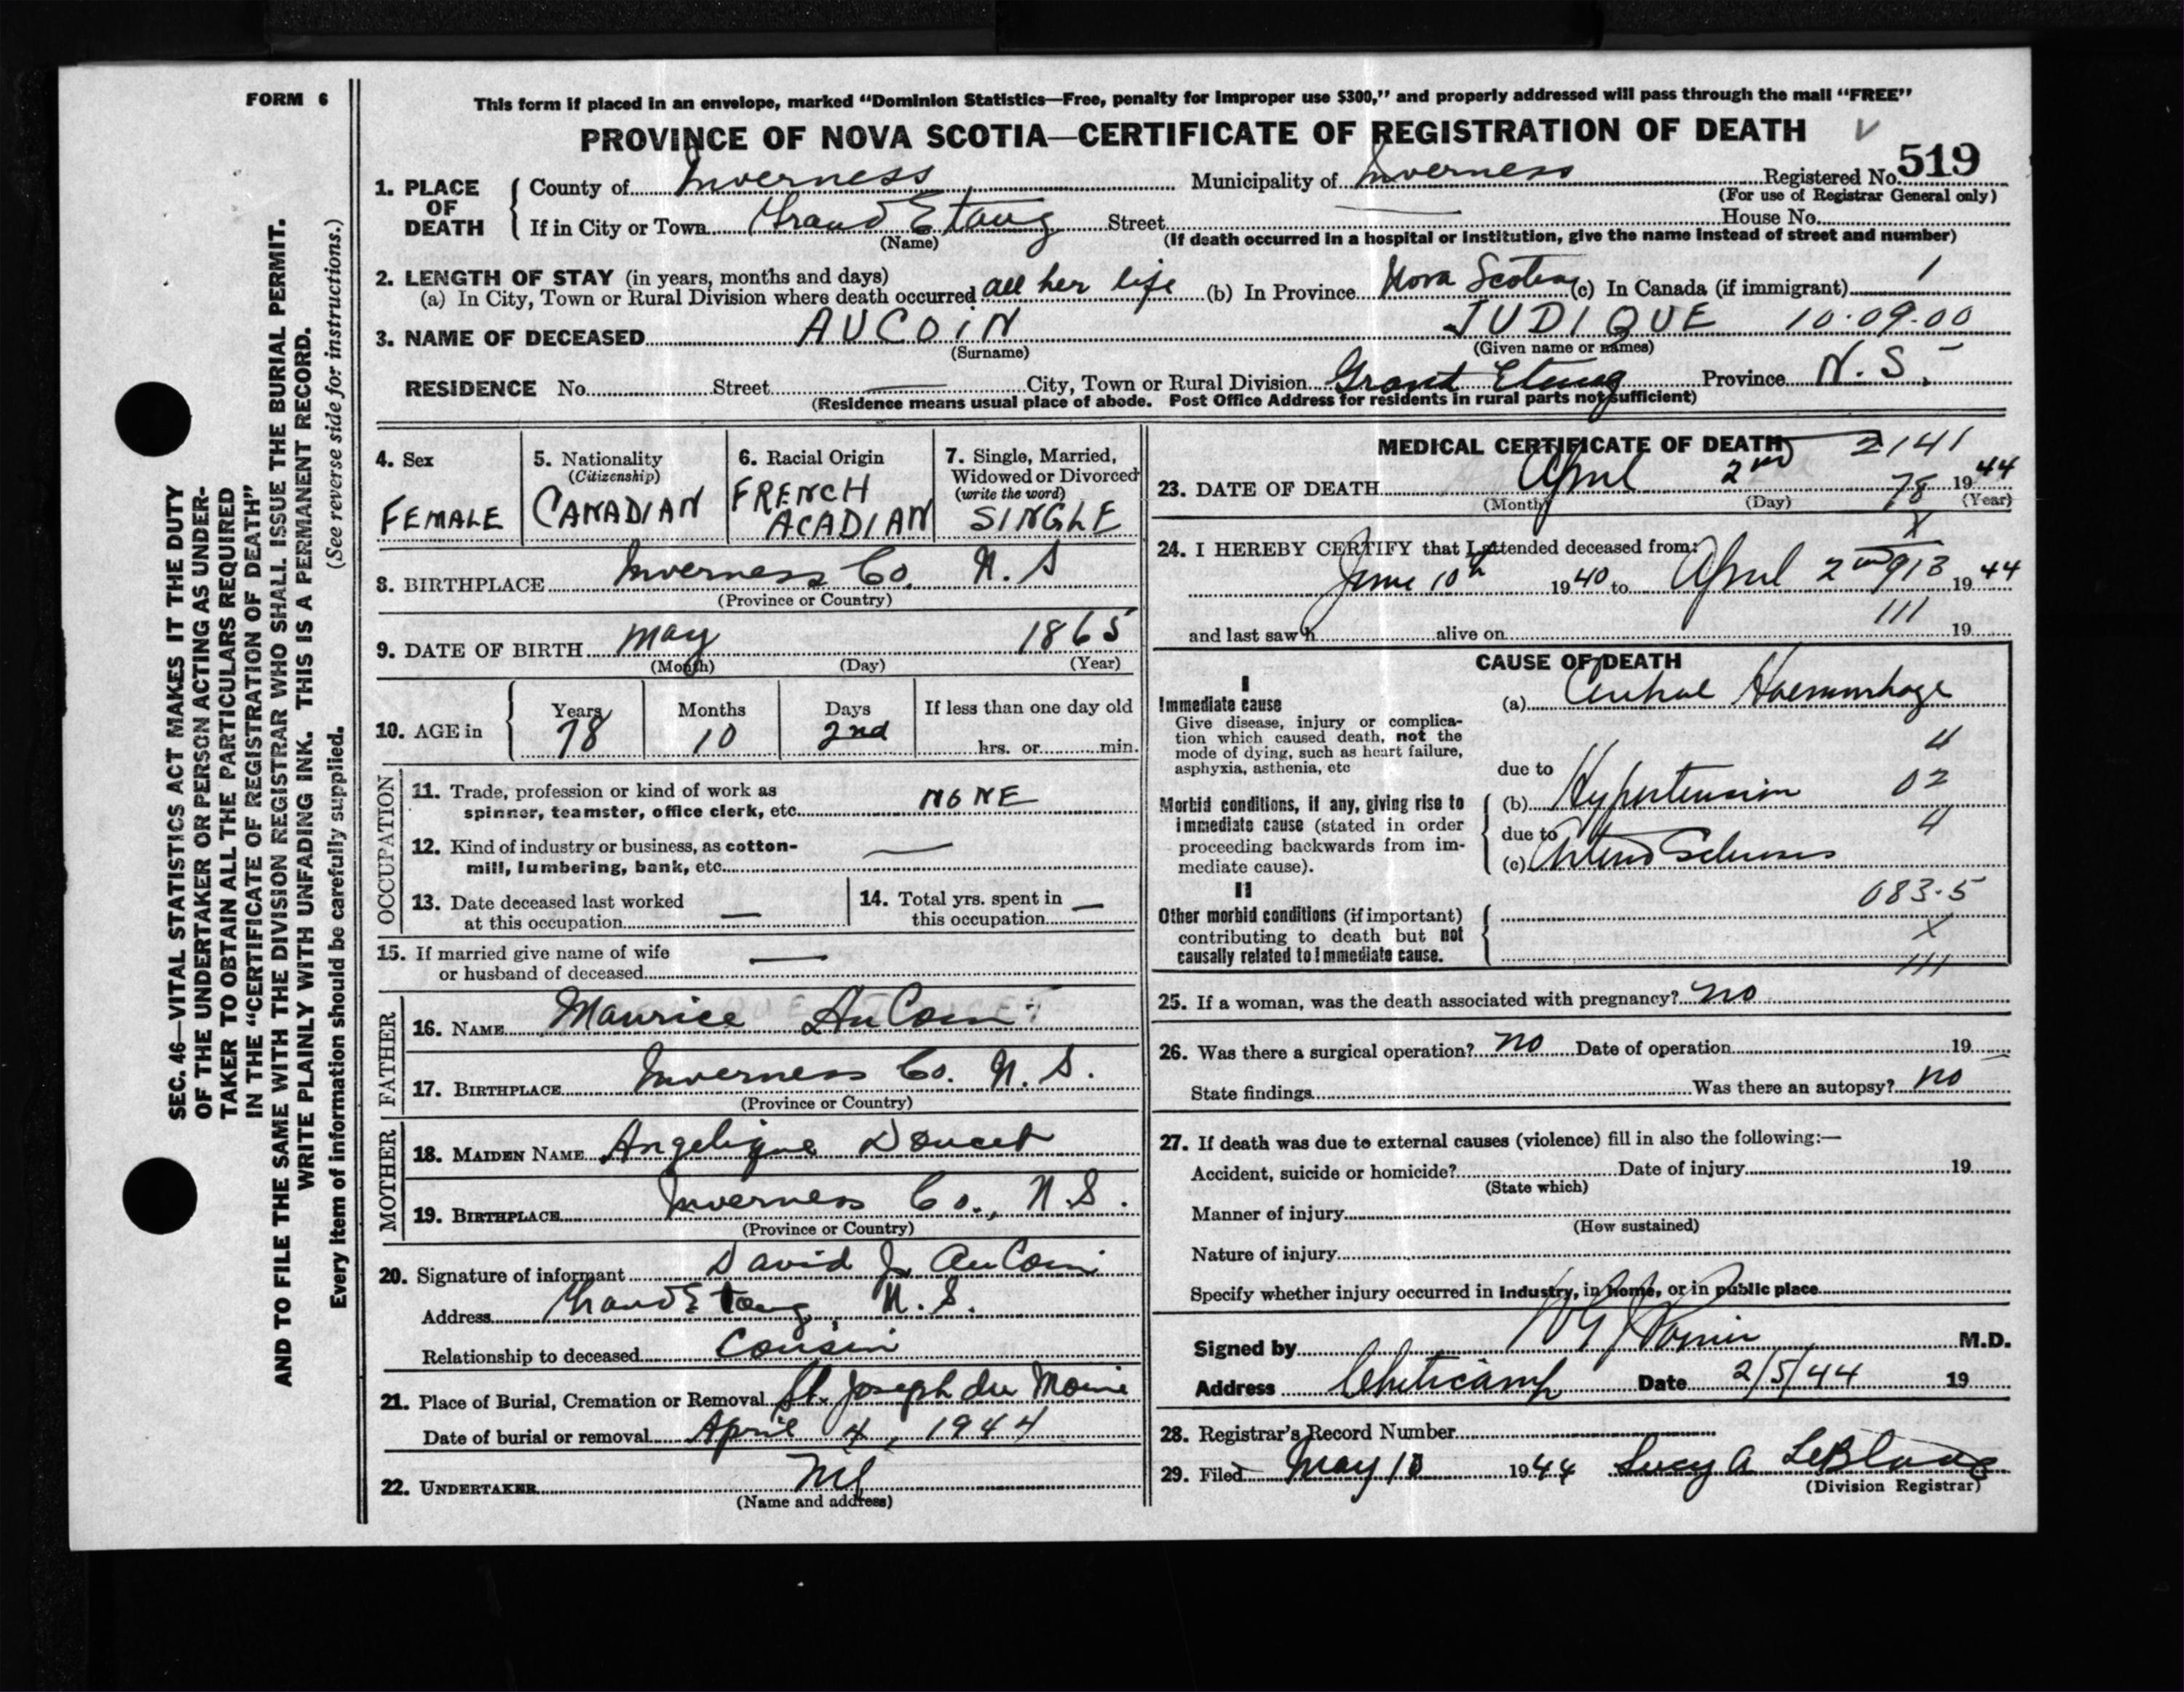 FORM 6
This form if placed in an envelope, marked "Dominion Statistics—Free, penalty for improper use $300," and properly addressed will pass through the mail "FREE"
PROVINCE OF NOVA SCOTIA—CERTIFICATE OF REGISTRATION OF DEATH
519
1. PLACE OF DEATH
County of Inverness Municipality of Inverness Registered No.
(For use of Registrar General only)
If in City or Town Grand Etang Street — House No.
(Name) (If death occurred in a hospital or institution, give the name instead of street and number)
2. LENGTH OF STAY (in years, months and days)
(a) In City, Town or Rural Division where death occurred all her life (b) In Province Nova Scotia (c) In Canada (if immigrant) 1
3. NAME OF DECEASED AUCOIN JUDIQUE 10.09.00
(Surname) (Given name or names)
RESIDENCE No. Street — City, Town or Rural Division Grand Etang Province N.S.
(Residence means usual place of abode. Post Office Address for residents in rural parts not sufficient)
SEC. 46—VITAL STATISTICS ACT MAKES IT THE DUTY
OF THE UNDERTAKER OR PERSON ACTING AS UNDER-
TAKER TO OBTAIN ALL THE PARTICULARS REQUIRED
IN THE "CERTIFICATE OF REGISTRATION OF DEATH"
AND TO FILE THE SAME WITH THE DIVISION REGISTRAR WHO SHALL ISSUE THE BURIAL PERMIT.
WRITE PLAINLY WITH UNFADING INK. THIS IS A PERMANENT RECORD.
Every item of information should be carefully supplied. (See reverse side for instructions.)
4. Sex
FEMALE
5. Nationality
(Citizenship)
CANADIAN
6. Racial Origin
FRENCH
ACADIAN
7. Single, Married,
Widowed or Divorced
(write the word)
SINGLE
8. BIRTHPLACE Inverness Co. N.S
(Province or Country)
9. DATE OF BIRTH May 1865
(Month) (Day) (Year)
10. AGE in
Years Months Days If less than one day old
78 10 2nd hrs. or min.
OCCUPATION
11. Trade, profession or kind of work as
spinner, teamster, office clerk, etc. NONE
12. Kind of industry or business, as cotton-
mill, lumbering, bank, etc. —
13. Date deceased last worked
at this occupation —
14. Total yrs. spent in
this occupation —
15. If married give name of wife
or husband of deceased —
FATHER
16. NAME Maurice AuCoin
17. BIRTHPLACE Inverness Co. N.S.
(Province or Country)
MOTHER
18. MAIDEN NAME Angelique Doucet
19. BIRTHPLACE Inverness Co., N.S.
(Province or Country)
20. Signature of informant David J. AuCoin
Address Grand Etang, N.S.
Relationship to deceased Cousin
21. Place of Burial, Cremation or Removal St. Joseph du Moine
Date of burial or removal April 4, 1944
22. UNDERTAKER Nil
(Name and address)
MEDICAL CERTIFICATE OF DEATH 2141
23. DATE OF DEATH April 2nd 78 1944
(Month) (Day) (Year)
X
24. I HEREBY CERTIFY that I attended deceased from:
June 10th 1940 to April 2nd 913 1944
111
and last saw h alive on 19
CAUSE OF DEATH
I
Immediate cause
Give disease, injury or complica-
tion which caused death, not the
mode of dying, such as heart failure,
asphyxia, asthenia, etc
(a) Cerebral Haemorrhage
4
due to
Morbid conditions, if any, giving rise to
immediate cause (stated in order
proceeding backwards from im-
mediate cause).
(b) Hypertension 02
due to 4
(c) Arterio Sclerosis
II
083.5
Other morbid conditions (if important)
contributing to death but not
causally related to immediate cause.
X
111
25. If a woman, was the death associated with pregnancy? no
26. Was there a surgical operation? no Date of operation 19
State findings Was there an autopsy? no
27. If death was due to external causes (violence) fill in also the following:—
Accident, suicide or homicide? Date of injury 19
(State which)
Manner of injury
(How sustained)
Nature of injury
Specify whether injury occurred in industry, in home, or in public place
Signed by M.D.
Address Cheticamp Date 2/5/44 19
28. Registrar's Record Number
29. Filed May 10 1944 Lucy A LeBlanc
(Division Registrar)